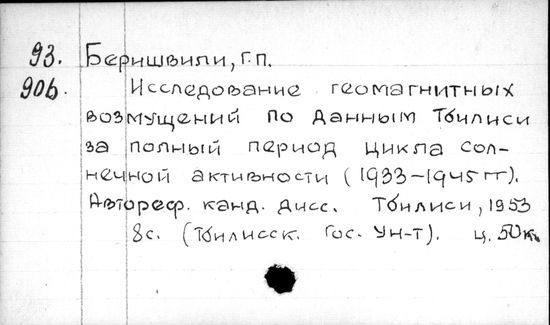 93. Беришвили, Г.П.
90б. Исследование геомагнитных
возмущений по данным Тбилиси
за полный период цикла сол-
нечной активности (1933-1945 гг).
Автореф. канд. дисс. Тбилиси, 1953
8с. (Тбилисск. Гос. Ун-т). ц. 50к.